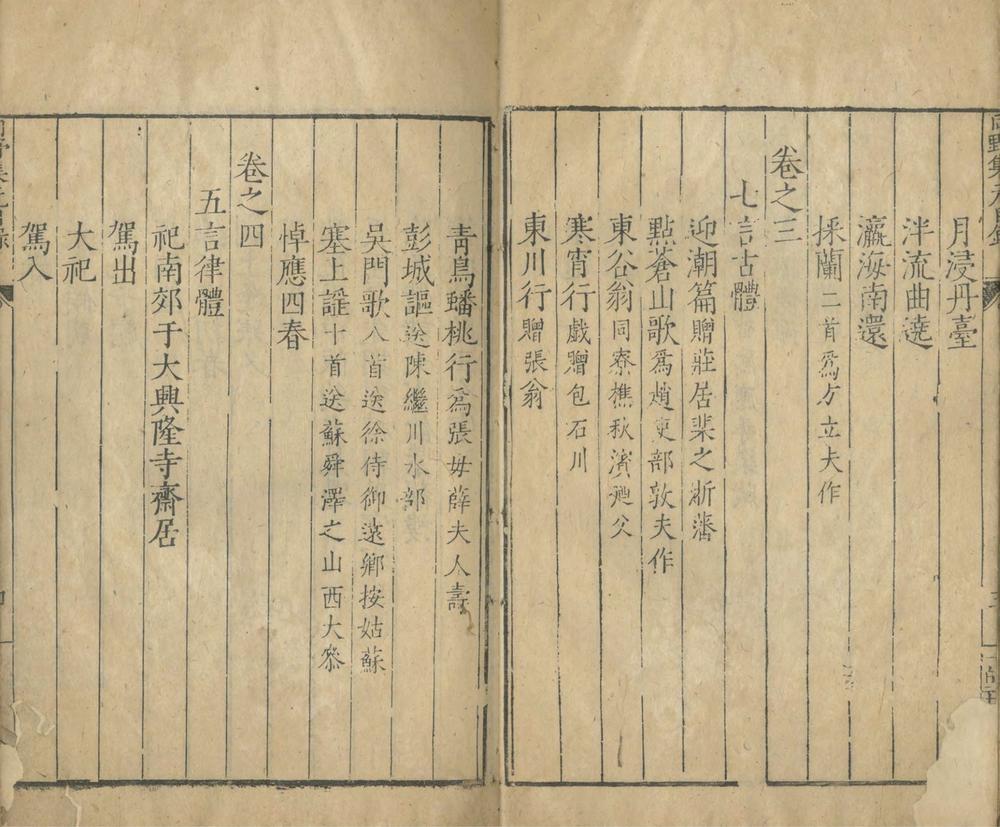 月浸丹臺
泮流曲遶
瀛海南還
採蘭二首爲方立夫作
卷之三
七言古體
迎潮篇贈莊居棐之浙藩
點蒼山歌爲趙吏部敦夫作
東谷翁同寮樵秋濱廼父
寒宵行戲贈包石川
東川行贈張翁
靑鳥蟠桃行爲張母薛夫人壽
彭城謳送陳繼川水部
吳門歌八首送徐侍御遠卿按姑蘇
塞上謡十首送蘇舜澤之山西大叅
悼應四春
卷之四
五言律體
祀南郊于大興隆寺齋居
駕出
大祀
駕入